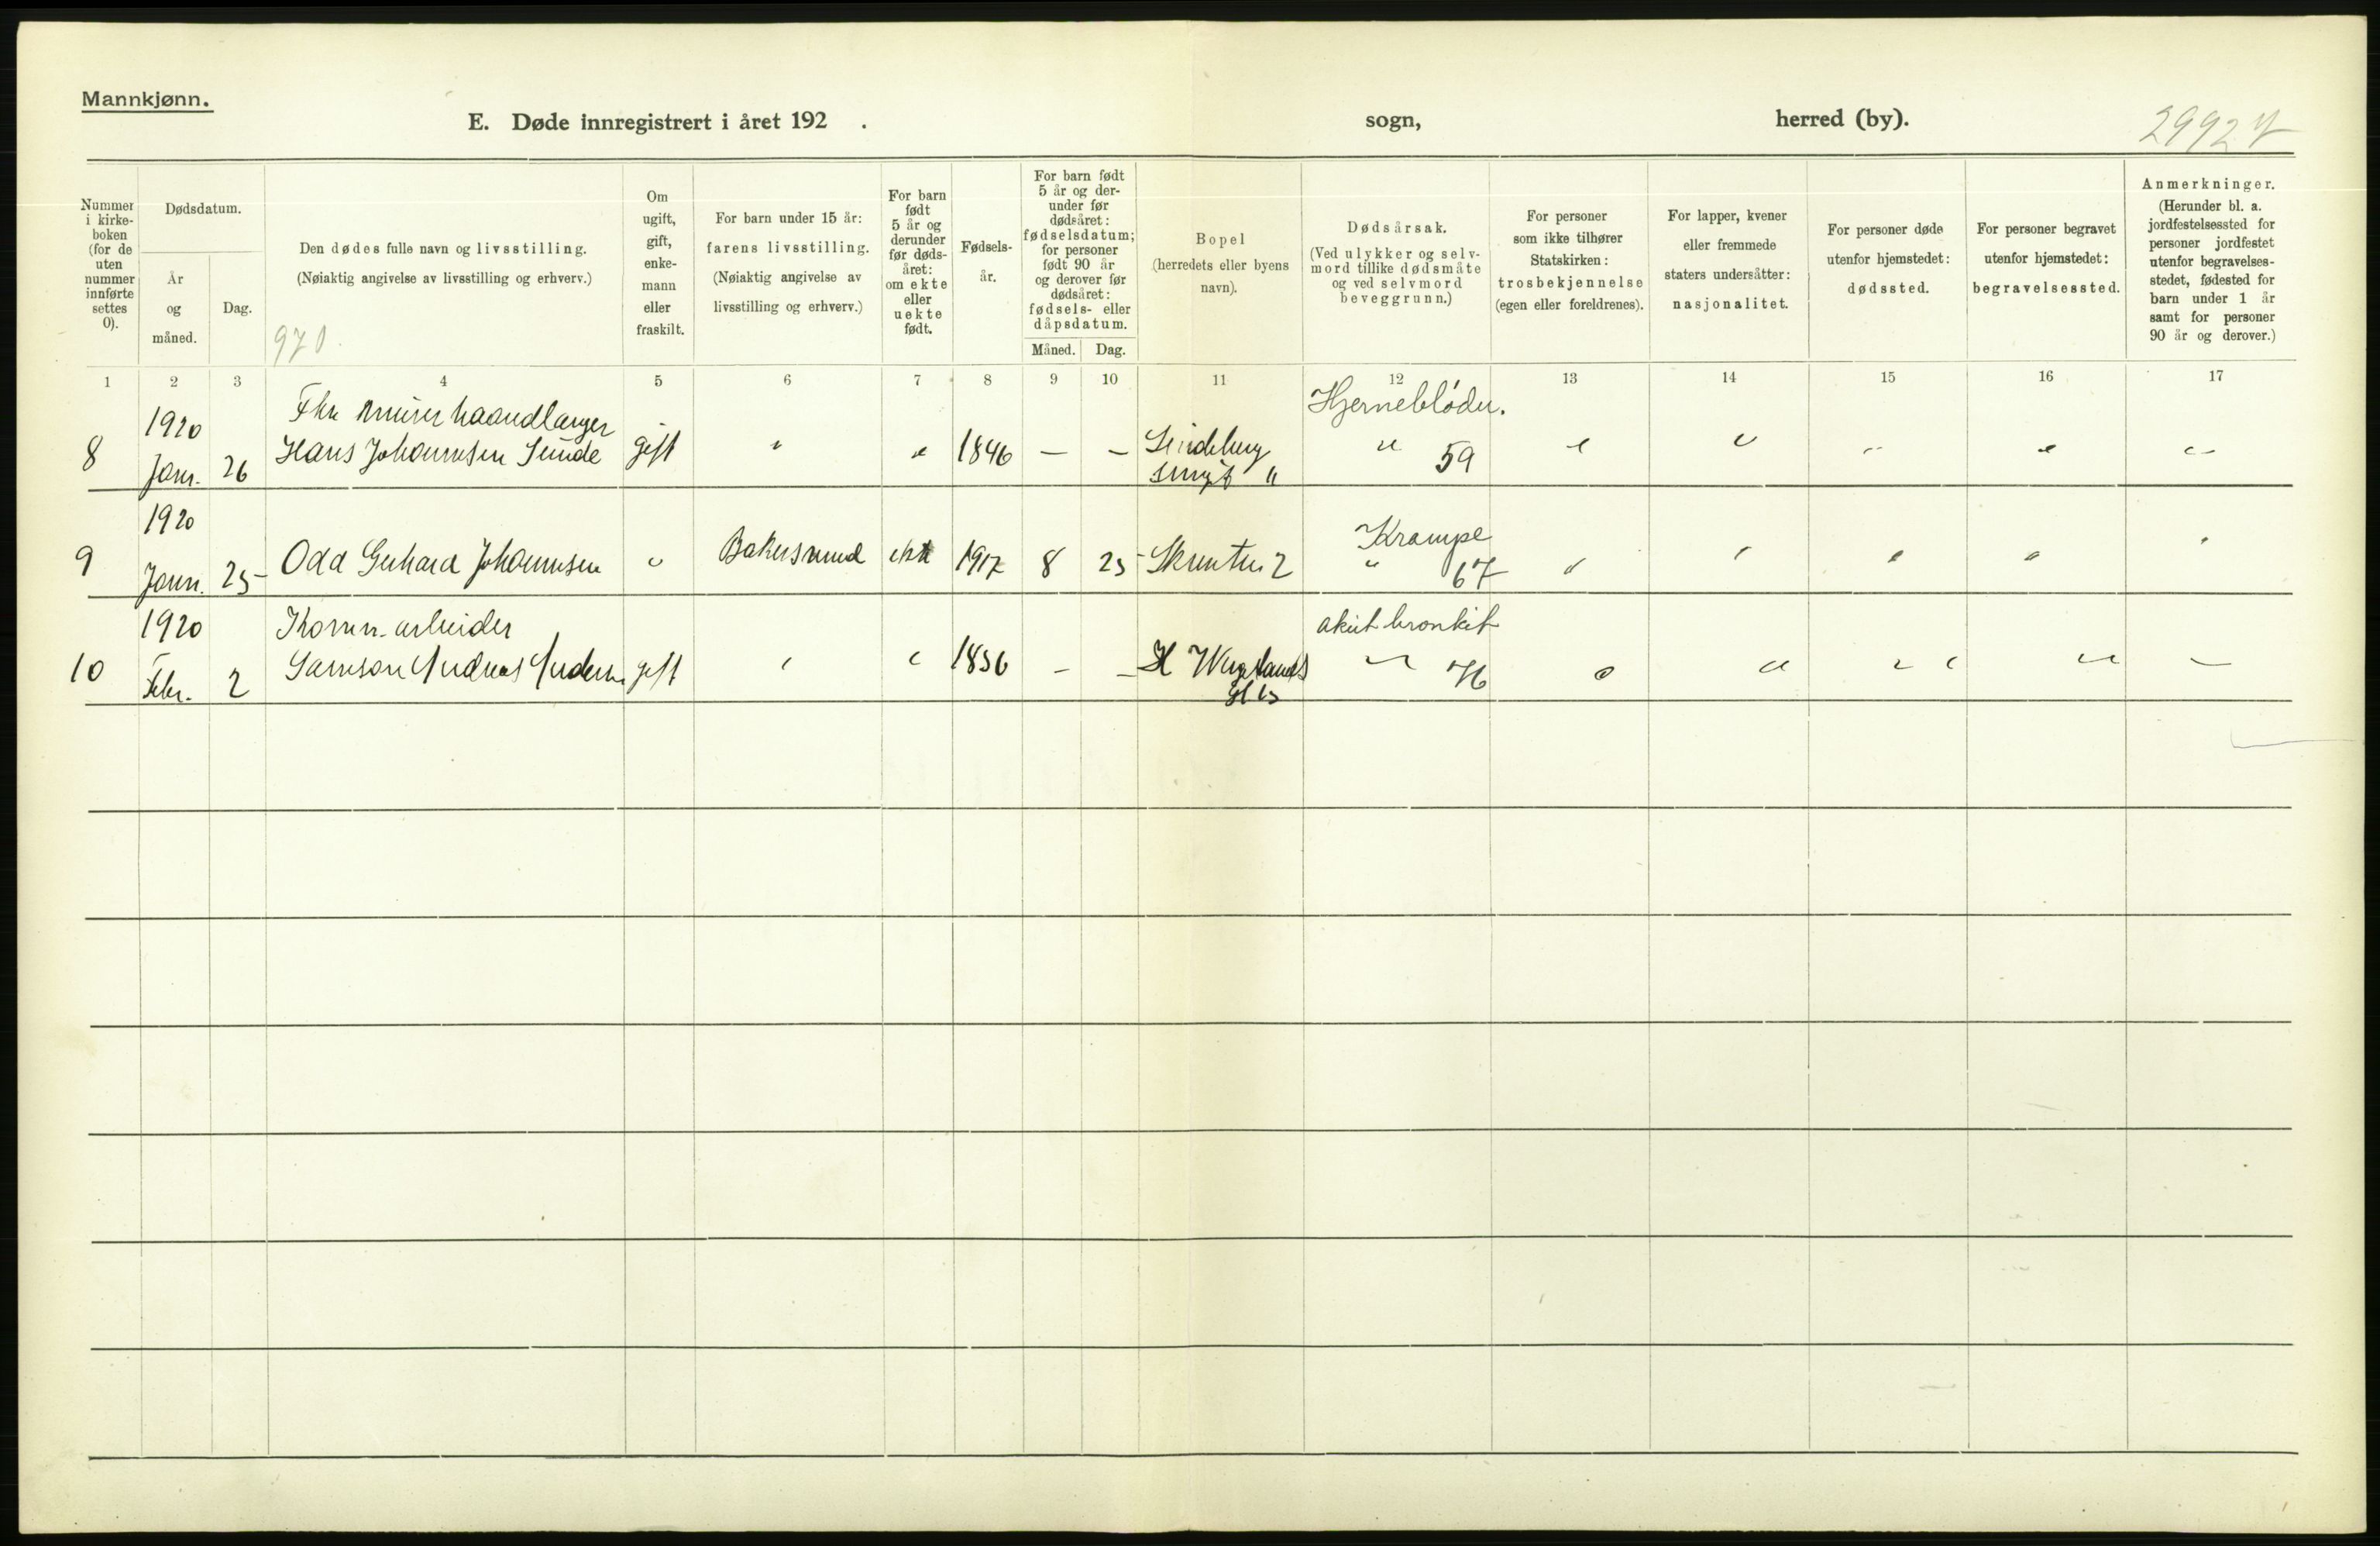 Mannkjønn.
E. Døde innregistrert i året 192 .
sogn,
herred (by).
Nummer i kirkeboken (for de uten nummer innførte settes 0).
Dødsdatum.
År og måned.
Dag.
Den dødes fulle navn og livsstilling.
(Nøiaktig angivelse av livsstilling og erhverv.)
970.
Om ugift, gift, enkemann eller fraskilt.
For barn under 15 år: farens livsstilling.
(Nøiaktig angivelse av livsstilling og erhverv.)
For barn født 5 år og derunder før dødsåret: om ekte eller uekte født.
Fødselsår.
For barn født 5 år og derunder før dødsåret: fødselsdatum; for personer født 90 år og derover før dødsåret: fødsels- eller dåpsdatum.
Måned. Dag.
Bopel
(herredets eller byens navn).
Dødsårsak.
(Ved ulykker og selvmord tillike dødsmåte og ved selvmord beveggrunn.)
For personer som ikke tilhører Statskirken: trosbekjennelse (egen eller foreldrenes).
For lapper, kvener eller fremmede staters undersåtter: nasjonalitet.
For personer døde utenfor hjemstedet: dødssted.
For personer begravet utenfor hjemstedet: begravelsessted.
Anmerkninger.
(Herunder bl. a. jordfestelsessted for personer jordfestet utenfor begravelsesstedet, fødested for barn under 1 år samt for personer 90 år og derover.)
1 2 3 4 5 6 7 8 9 10 11 12 13 14 15 16 17
1920 murerhaandlanger Hjernebløder.
8 Janr. 26 Hans Johannesen Sunde gift " " 1846 — — " 59
1920 Krampe
9 Janr. 25 Odd Gerhard Johannesen " Bakersvend ekte 1917 8 25 2 " 67
1920 Komm. arbeider akut bronkit
10 Febr. 2 Samson Andreas gift " " 1856 — — H Wergelands " 76